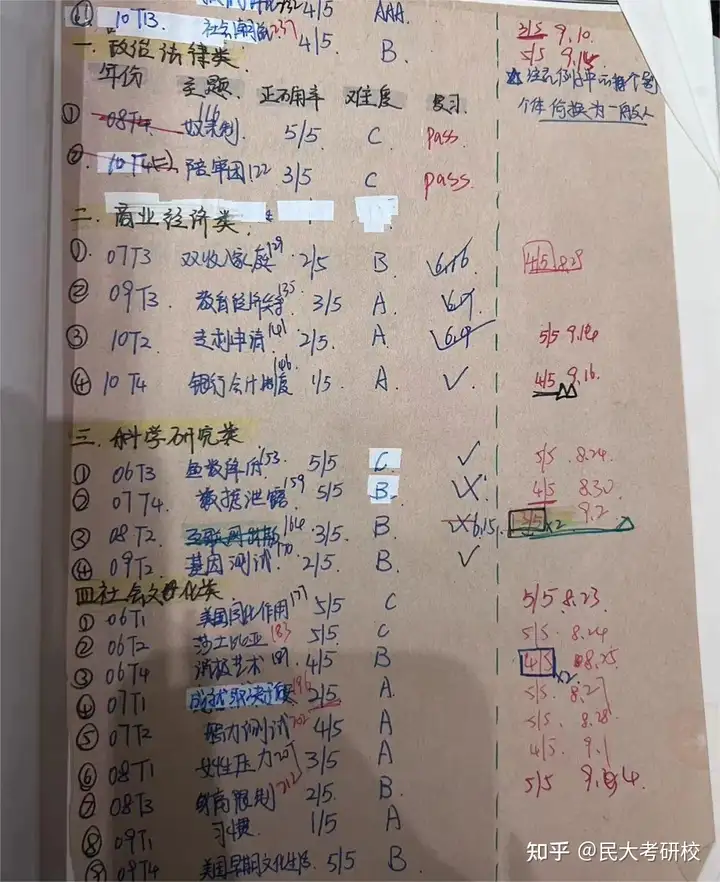 10T3. 社会 237 4/5 AAA. 3/5 9.10
一. 政治法律类. 4/5 B. 5/5 9.15
年份 主题. 正确率 难度 复习.
个体 转换为一般人
① 08T4. 奴隶制 116 5/5 C pass.
② 10T4(二) 陪审团 122 3/5 C pass.
二. 商业经济类.
①. 07T3 双收入家庭 129 2/5 B 6.16 4/5 8.29
② 09T3. 教育经济 135 3/5 A 6.9
③ 10T2. 专利申请 141 2/5 A 6.9 5/5 9.14
④ 10T4 银行会计制度 146 1/5 A. ✓ 4/5 9.16.
三. 科学研究类
① 06T3 鱼数降低 153 5/5 C. ✓ 5/5 8.24
② 07T4. 数据泄露 159 5/5 B. 4/5 8.30
③ 08T2 互联网 164 3/5 B. 6.15. 3/5 ×2 9.2
④ 09T2 基因测试 170 2/5 B. ✓
四 社会文化类
① 06T1 美国同化作用 177 5/5 C 5/5 8.23
② 06T2 莎士比亚 183 5/5 C 5/5 8.24
③ 06T4 消极艺术 189 4/5 B 4/5 ×2 8.25
④ 07T1 196 2/5 A. 5/5 8.27
⑤ 07T2 智力测试 202 4/5 A 3/5 8.28
⑥ 08T1 女性压力 207 3/5 A 4/5 9.1
⑦ 08T3 身高限制 212 2/5 B. 5/5 9.4
⑧ 09T1 习惯 1/5 A
⑨ 09T4 美国早期文化生活 5/5 B
知乎 @民大考研校